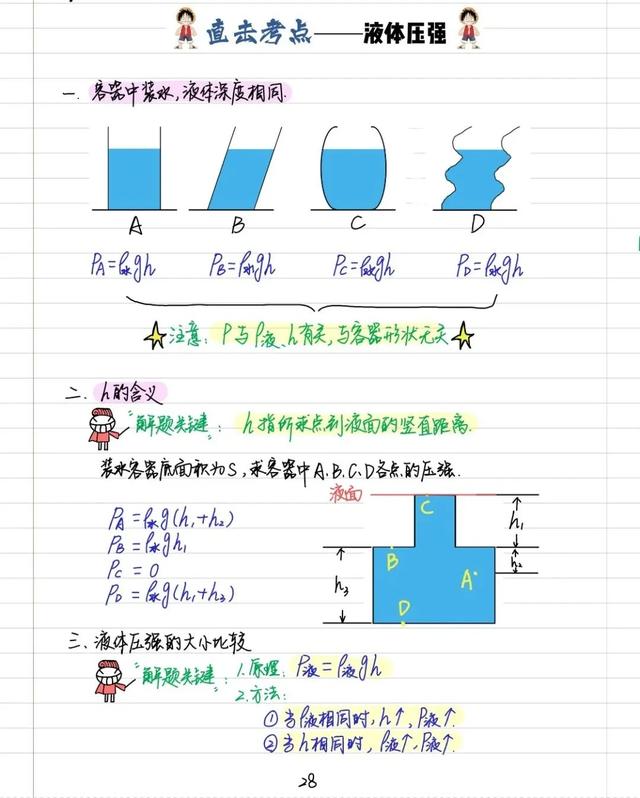 直击考点——液体压强
一. 容器中装水,液体深度相同.
A B C D
P_A=ρ水gh P_B=ρ水gh P_C=ρ水gh P_D=ρ水gh
注意: P与ρ液、h有关,与容器形状无关
二. h的含义
"解题关键": h指所求点到液面的竖直距离.
装水容器底面积为S,求容器中A.B.C.D各点的压强.
P_A=ρ水g(h₁+h₂)
P_B=ρ水gh₁
P_C=0
P_D=ρ水g(h₁+h₃)
液面
C
h₁
B
h₂
A
h₃
D
三. 液体压强的大小比较
"解题关键": 1.原理: P液=ρ液gh
2.方法:
①当ρ液相同时,h↑,P液↑.
②当h相同时,ρ液↑,P液↑.
28